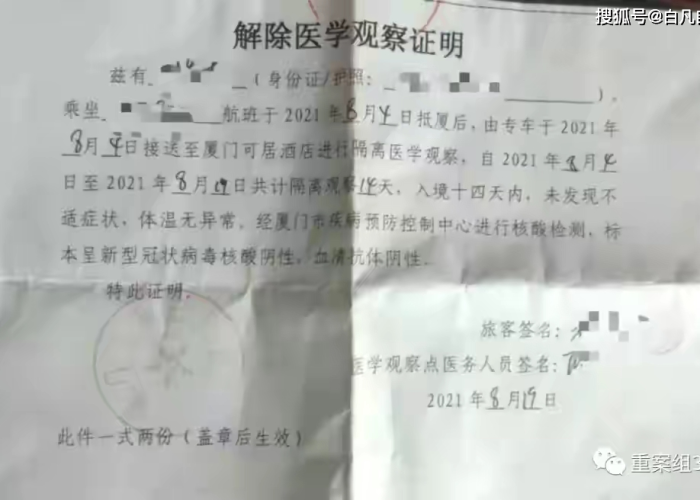 搜狐号@白凡
解除医学观察证明
兹有 （身份证/护照： ），
乘坐 航班于2021年8月4日抵厦后，由专车于2021年
8月4日接送至厦门可居酒店进行隔离医学观察，自2021年8月4
日至2021年8月19日共计隔离观察14天，入境十四天内，未发现不
适症状，体温无异常。经厦门市疾病预防控制中心进行核酸检测，标
本呈新型冠状病毒核酸阴性，血清抗体阴性.
特此证明.
旅客签名：
医学观察点医务人员签名：
2021年8月19日
此件一式两份（盖章后生效）
重案组3